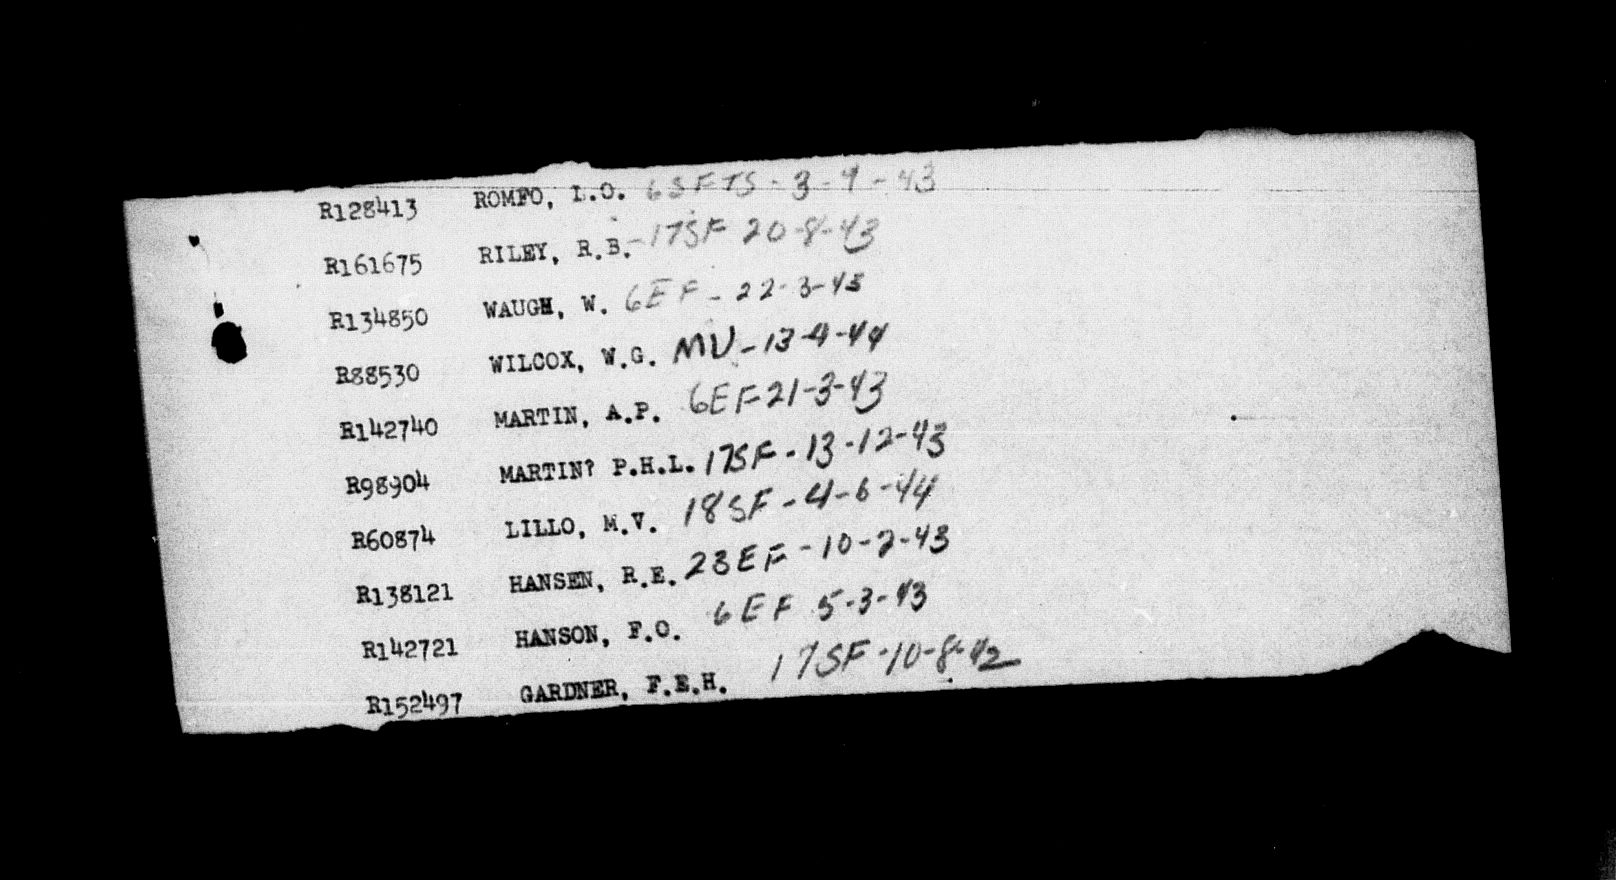 R128413 ROMFO, L.O. 6SFTS - 3-9-43
R161675 RILEY, R.B. - 17SF 20-8-43
R134850 WAUGH, W. 6EF - 22-3-43
R88530 WILCOX, W.G. MU - 13-4-44
R142740 MARTIN, A.P. 6EF 21-3-43
R98904 MARTIN? P.H.L. 17SF - 13-12-43
R60874 LILLO, M.V. 18SF - 4-6-44
R138121 HANSEN, R.E. 23EF - 10-2-43
R142721 HANSON, F.O. 6EF 5-3-43
R152497 GARDNER, F.E.H. 17SF - 10-8-42